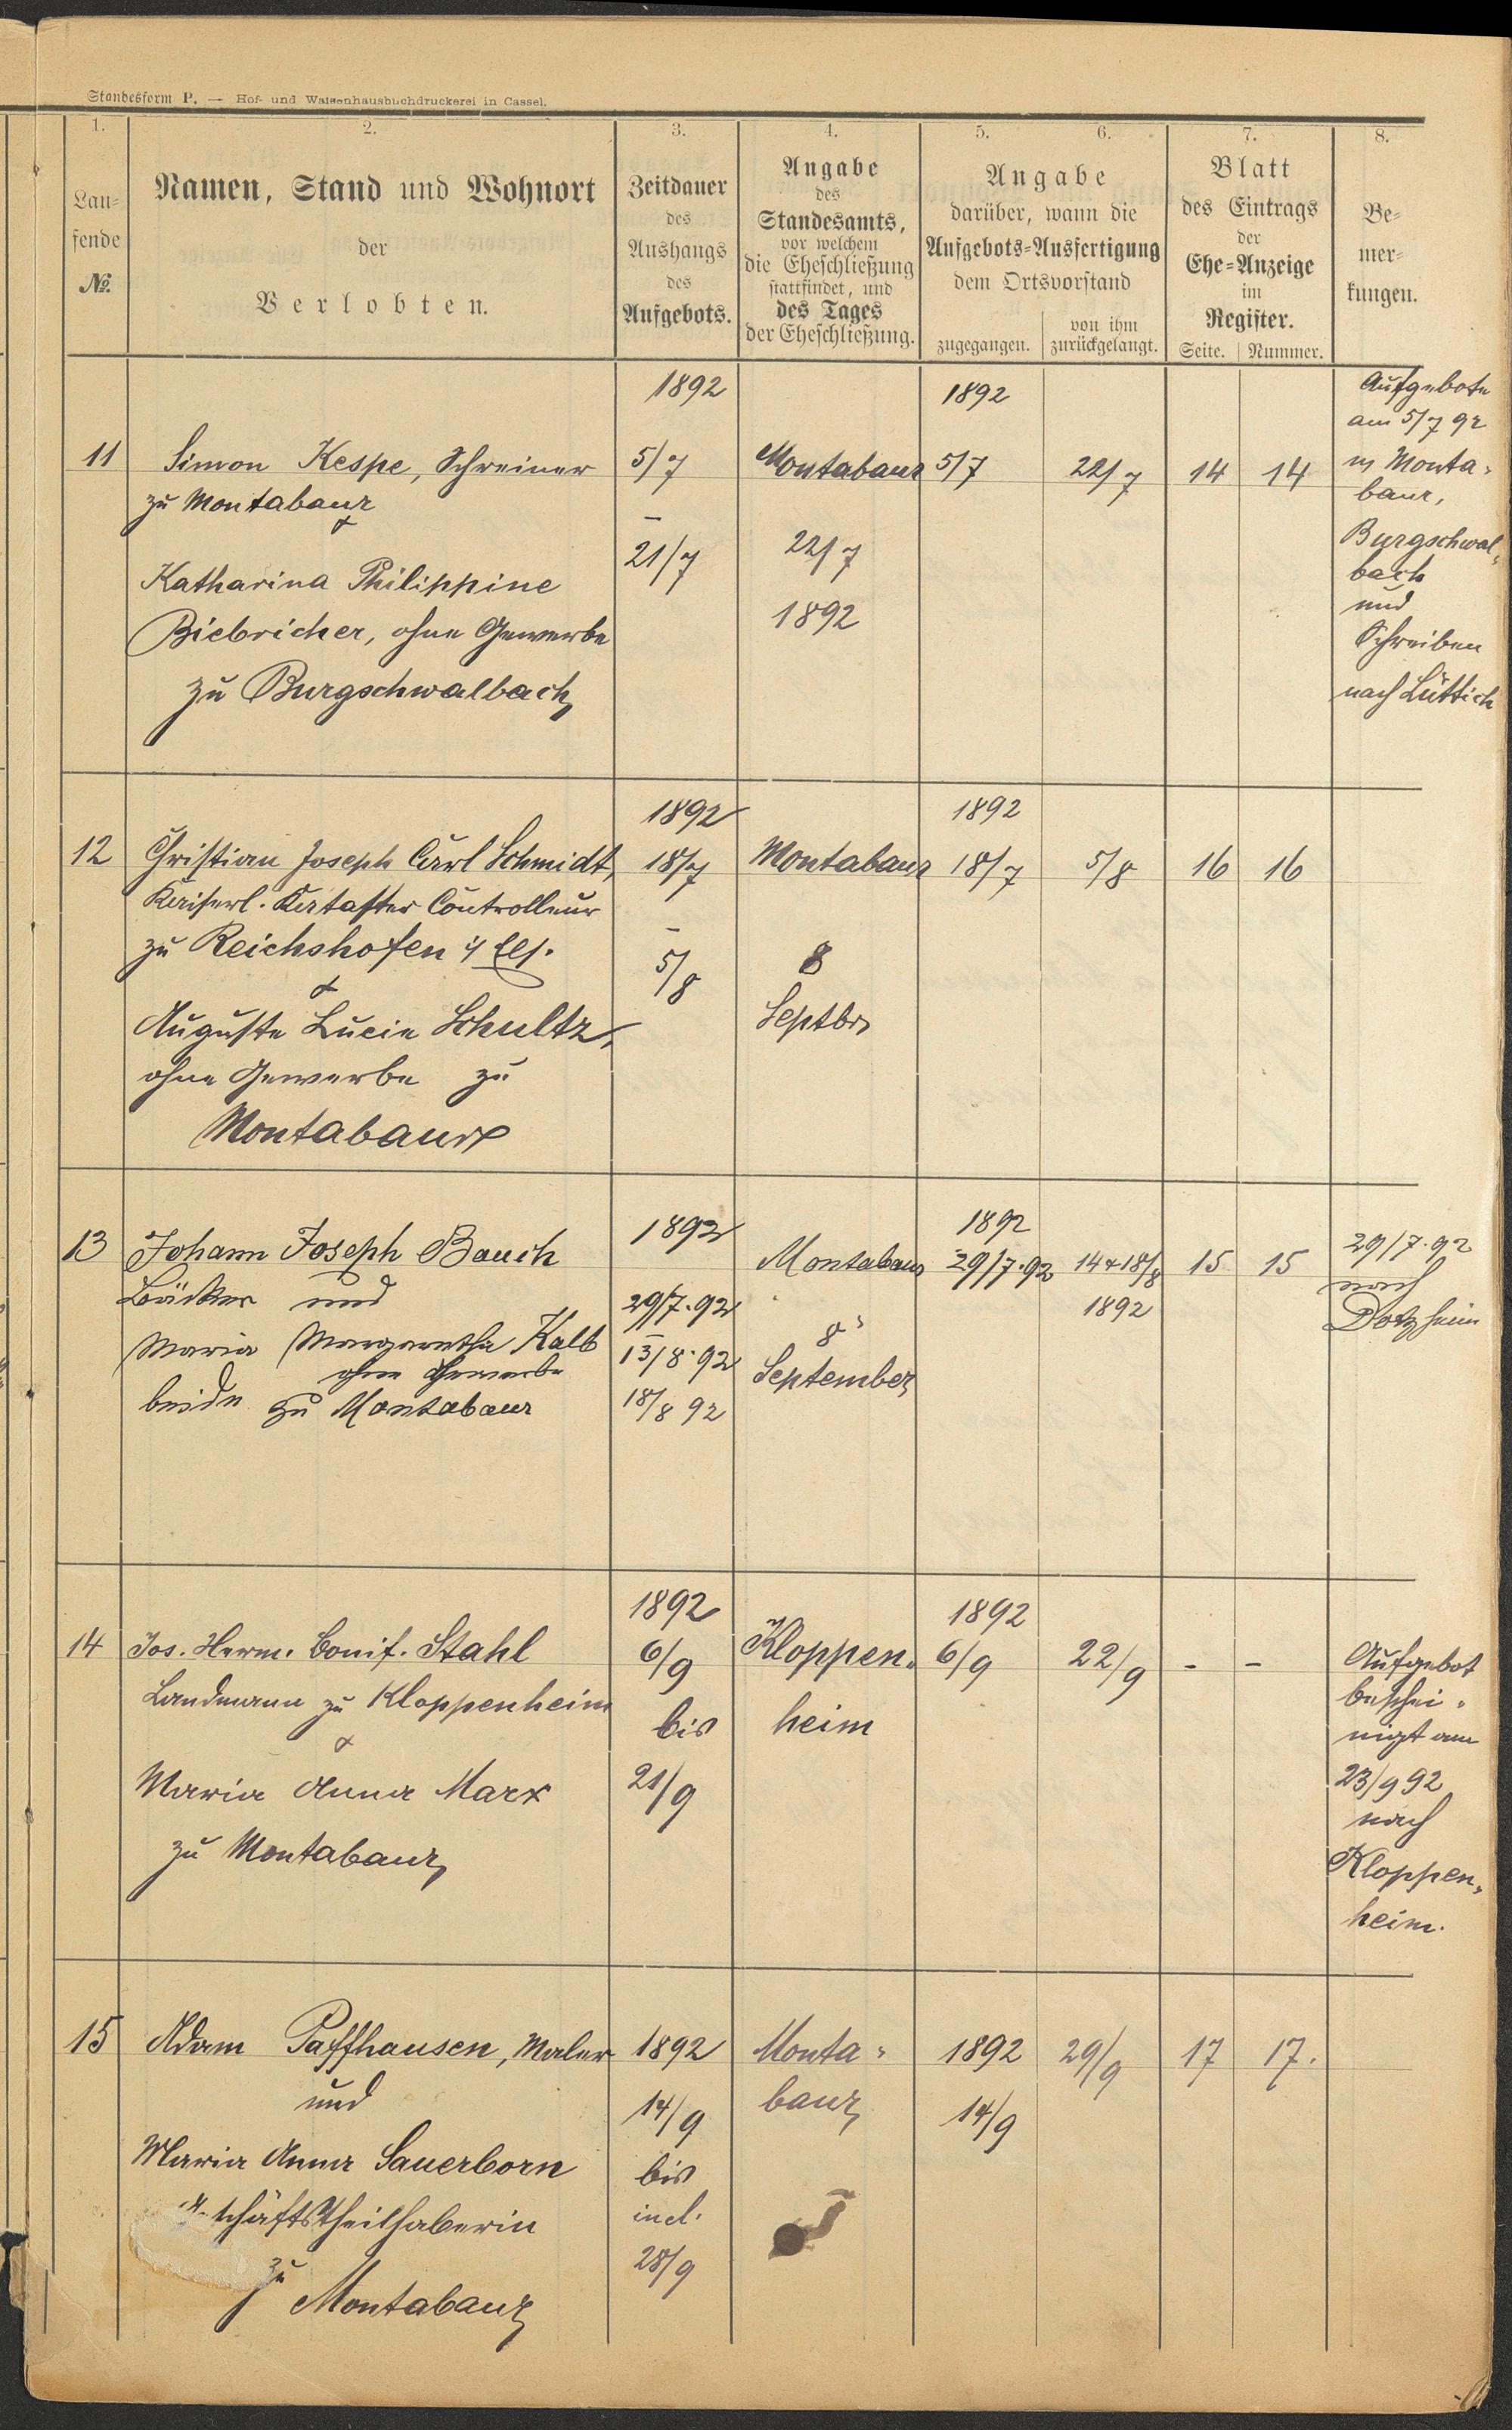 Standesform P. — Hof- und Waisenhausbuchdruckerei in Cassel.
1. 2. 3. 4. 5. 6. 7. 8.
Lau-
fende
№.
Namen, Stand und Wohnort
der
Verlobten.
Zeitdauer
des
Aushangs
des
Aufgebots.
Angabe
des
Standesamts,
vor welchem
die Eheschließung
stattfindet, und
des Tages
der Eheschließung.
Angabe
darüber, wann die
Aufgebots-Ausfertigung
dem Ortsvorstand
zugegangen.
von ihm
zurückgelangt.
Blatt
des Eintrags
der
Ehe-Anzeige
im
Register.
Seite. Nummer.
Be-
mer-
kungen.
11
Simon Kespe, Schreiner
zu Montabaur
&
Katharina Philippine
Biebricher, ohne Gewerbe
zu Burgschwalbach
1892
5/7
–
21/7
Montabaur
22/7
1892
1892
5/7
22/7
14
14
Aufgebote
am 5/7 92
in Monta-
baur,
Burgschwal-
bach
und
Schreiben
nach Lüttich
12
Christian Joseph Carl Schmidt,
Kaiserl. Kataster Controlleur
zu Reichshofen i/ Els.
&
Auguste Lucie Schultz,
ohne Gewerbe zu
Montabaur
1892
18/7
–
5/8
Montabaur
8
Septbr
1892
18/7
5/8
16
16
13
Johann Joseph Bauch
Bäcker und
Maria Margaretha Kalb
ohne Gewerbe
beide zu Montabaur
1892
29/7.92
–
13/8.92
18/8 92
Montabaur
8
September
1892
29/7.92
14 & 18/8
1892
15
15
29/7.92
nach
Dotzheim
14
Jos. Herm. Bonif. Stahl
Landmann zu Kloppenheim
&
Maria Anna Marx
zu Montabaur
1892
6/9
bis
21/9
Kloppen-
heim
1892
6/9
22/9
-
-
Aufgebot
beschei-
nigt am
23/9 92
nach
Kloppen-
heim.
15
Adam Paffhausen, Maler
und
Maria Anna Sauerborn
schäftstheilhaberin
zu
Montabaur
1892
14/9
bis
incl.
28/9
Monta-
baur
1892
14/9
29/9
17
17.